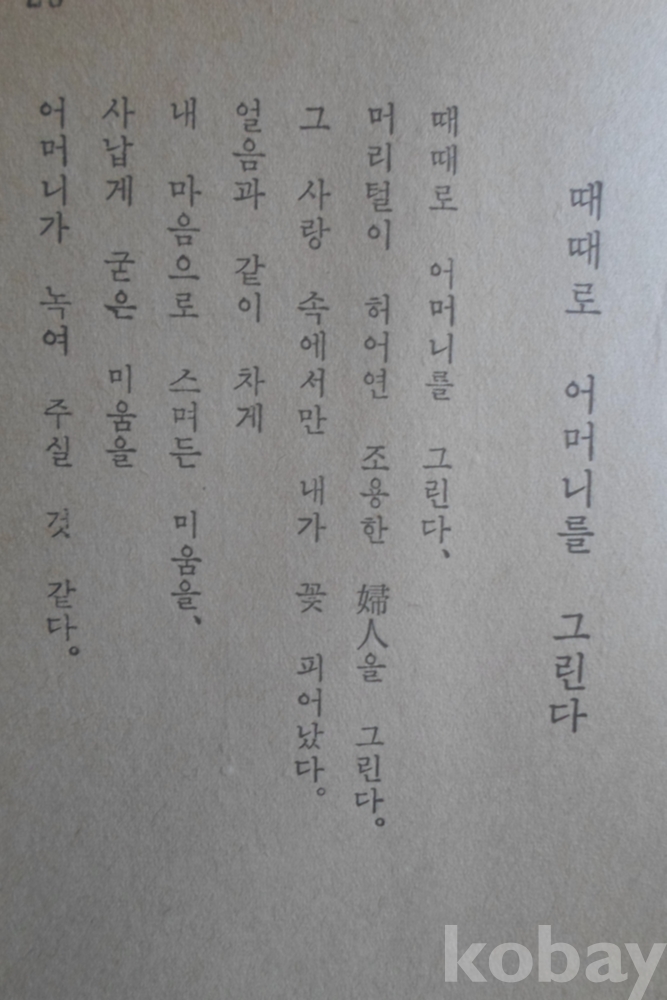 때때로 어머니를 그린다
때때로 어머니를 그린다、
머리털이 허어연 조용한 婦人을 그린다。
그 사랑 속에서만 내가 꽃 피어났다。
얼음과 같이 차게
내 마음으로 스며든 미움을、
사납게 굳은 미움을
어머니가 녹여 주실 것 같다。
kobay